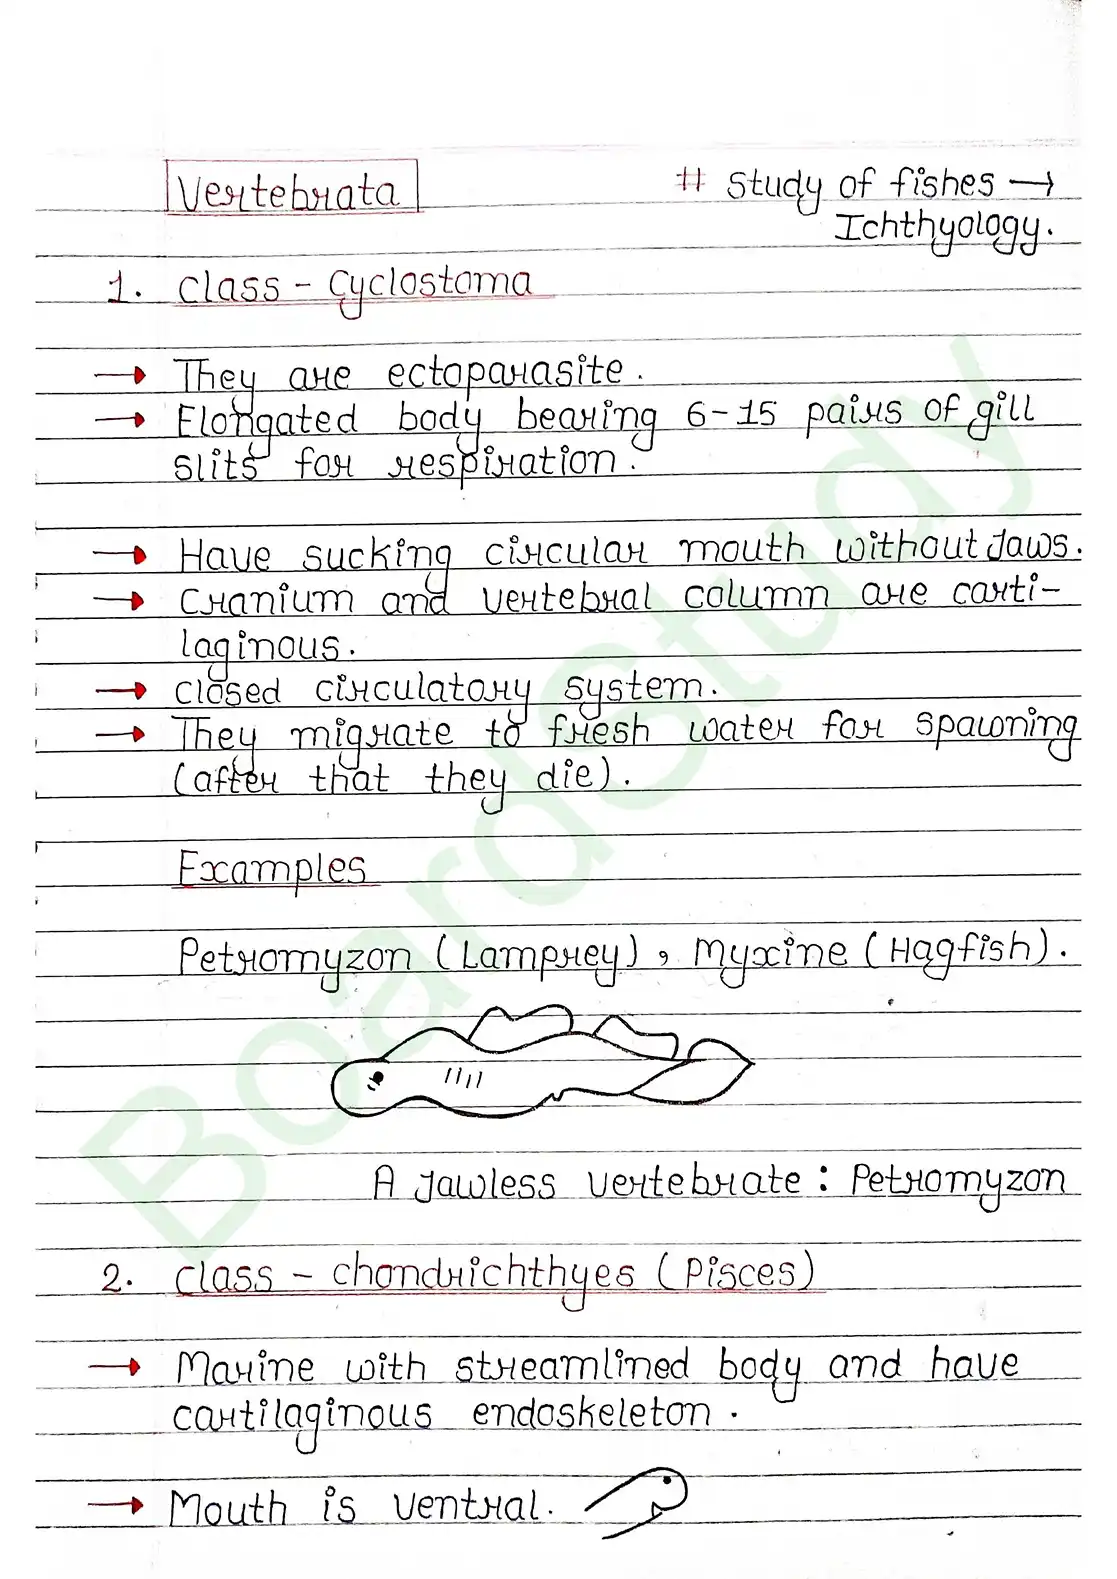 Vertebrata
# Study of fishes →
Ichthyology.
1. Class - Cyclostoma
→ They are ectoparasite.
→ Elongated body bearing 6-15 pairs of gill
slits for respiration.
→ Have sucking circular mouth without Jaws.
→ Cranium and vertebral column are carti-
laginous.
→ closed circulatory system.
→ They migrate to fresh water for spawning
(after that they die).
Examples
Petromyzon (Lamprey), Myxine (Hagfish).
A Jawless vertebrate : Petromyzon
2. Class - Chondrichthyes (Pisces)
→ Marine with streamlined body and have
cartilaginous endoskeleton.
→ Mouth is ventral.
BoardStudy